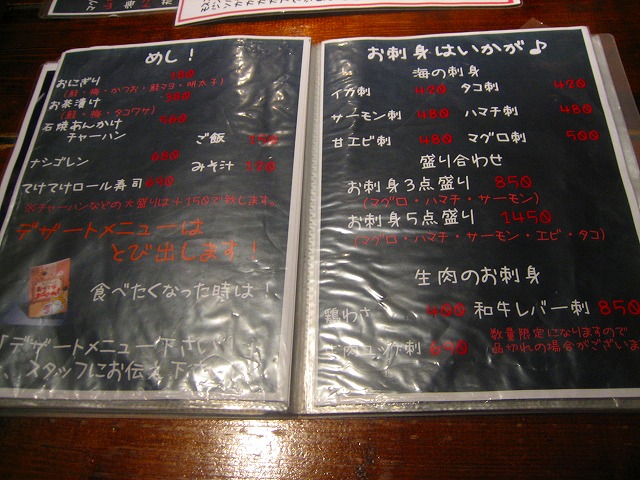 めし！
おにぎり
(鮭・梅・かつお・鮭マヨ・明太子)
お茶漬け
(鮭・梅・タコワサ)
石焼あんかけ
チャーハン
ご飯
ナシゴレン
みそ汁
てけてけロール寿司
※チャーハンなどの大盛りは＋150で致します。
デザートメニューは
とび出します！
食べたくなった時は！
「デザートメニュー下さい
スタッフにお伝え下
お刺身はいかが♪
海の刺身
イカ刺 420 タコ刺 420
サーモン刺 480 ハマチ刺 480
甘エビ刺 480 マグロ刺 500
盛り合わせ
お刺身3点盛り 850
(マグロ・ハマチ・サーモン)
お刺身5点盛り 1450
(マグロ・ハマチ・サーモン・エビ・タコ)
生肉のお刺身
鶏わさ 400 和牛レバー刺 850
刺 690
数量限定になりますので
品切れの場合がございま